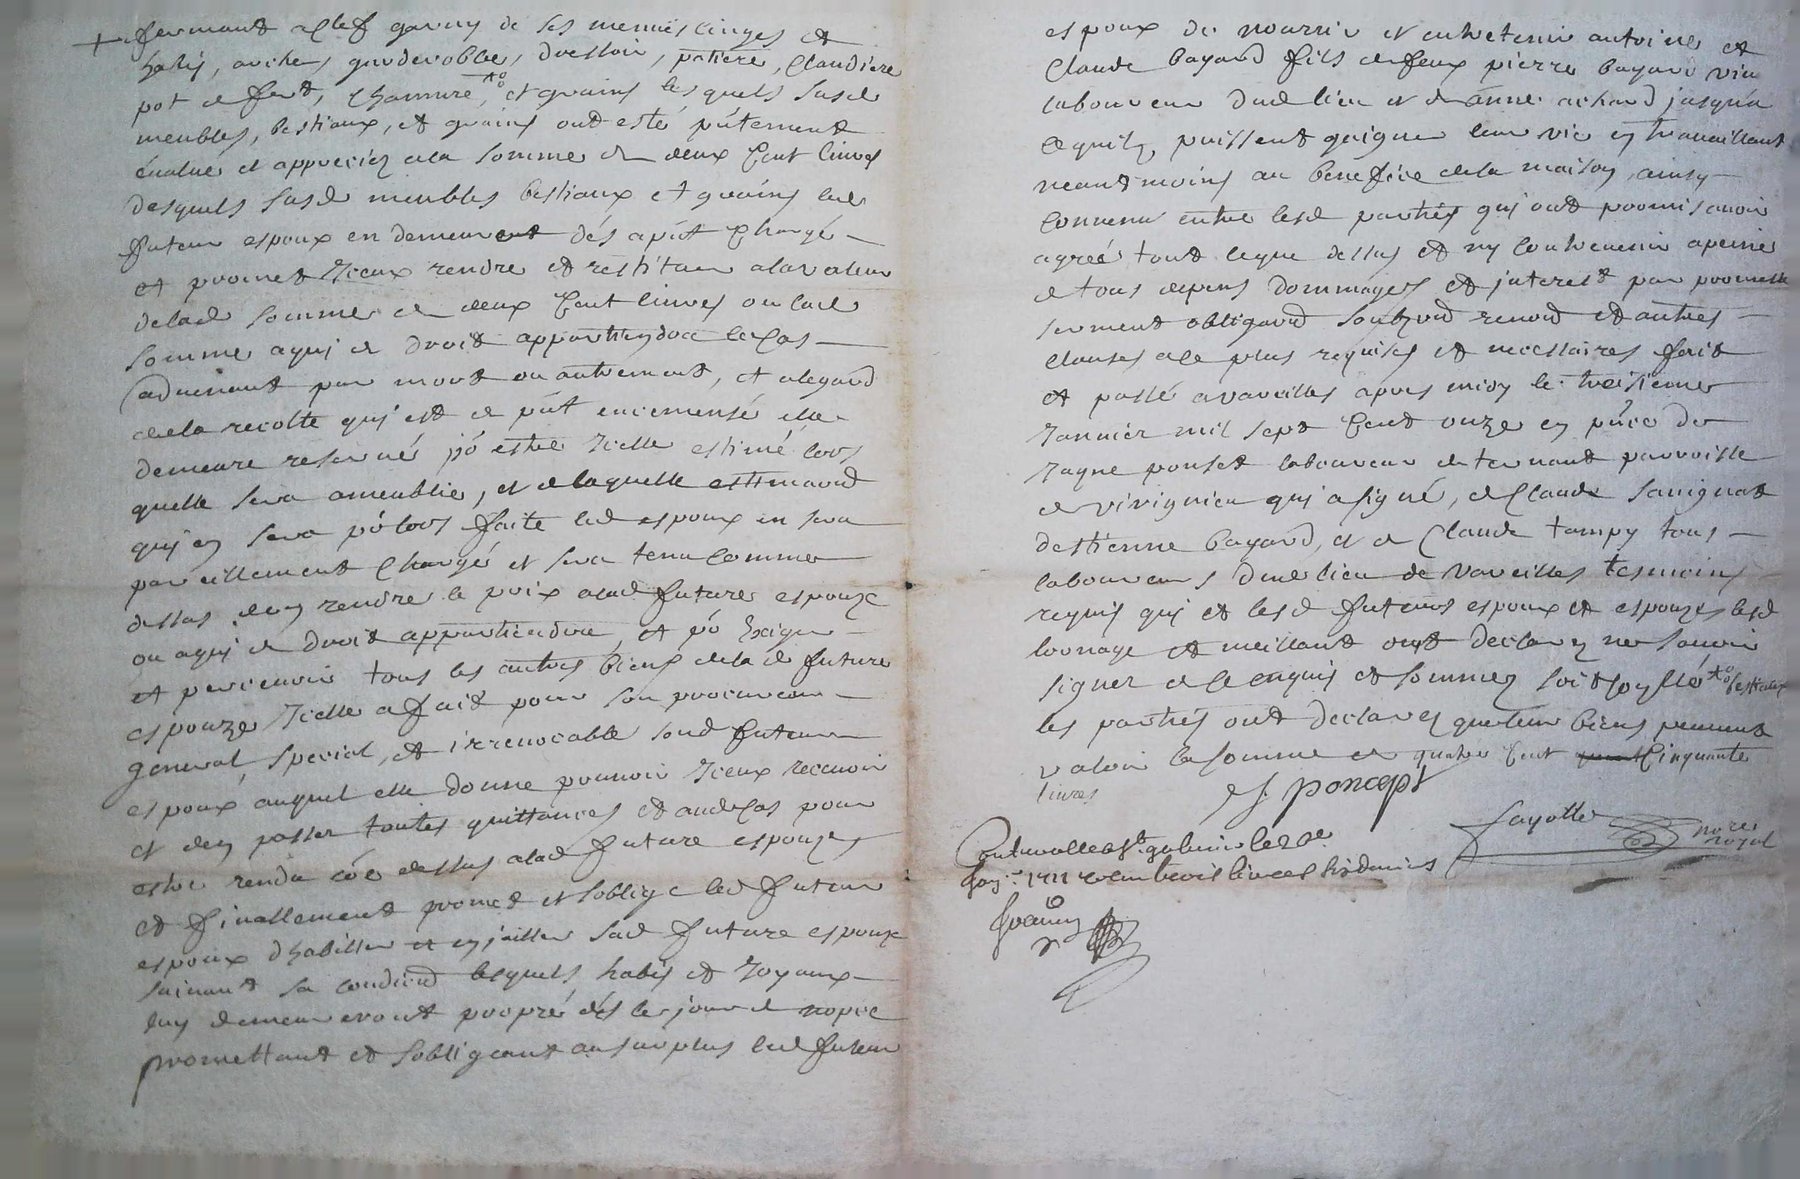 + fermant a clef garny de ses menus linges et
habis, arches garderobbe, dressoir, patiere, Claudiere
pot de fert, et grains lesquels susd
meubles, bestiaux, et grains ont esté pñtement
évalué et appreciéz a la somme de deux Cent livres
desquels susd meubles bestiaux et grains led
futeur espoux en demeurent dés apñt Chargé
et promet Iceux rendre et restituer a la valeur
de lad somme de deux Cent livres ou lad
somme a qui de droit appartiendra le Cas
advenant par mort ou autrement, et a legard
de la recolte qui est de pñt encemensé elle
demeure reservé po estre Icelle estimé lors
quelle sera ameublie, et de laquelle estimaõn
qui en sera pò lors faite led espoux en sera
pareillement Chargé et sera tenu Comme
dessus den rendre le prix alad future espouze
ou a qui de droit appartiendra, et pò Exiger
et percevoir tous les autres biens de lad future
espouze Icelle a fait pour son procureur
general, special, et irrevocable sond futeur
espoux auquel elle donne pouvoir Iceux recevoir
et den passer toutes quittances et aud Cas pour
estre rendu cõe dessus alad future espouze
et finallement promet et soblige led futeur
espoux dhabiller et enjoiller sad future espouze
suivant sa condiõn lesquels habis et Joyaux
luy demeureront propre dés le jour de nopce
promettant et sobligeant au surplus led futeur
espoux de nourrir et entretenir antoine et
Claude bayard fils de feux pierre bayard viv
laboureur dud lieu et de anne achard jusqu'a
ce quilz puissent gaigner leur vie en travaillant
neantmoins au benefice de la maison, ainsy
convenu entre lesd parties qui ont promis avoir
agreé tout ce que dessus et ny contrevenir a peine
de tous depens dommages et interest par promesse
serment obligaõn renoõn et autres
clauses a ce plus requises et necessaires fait
et passé a vareilles apres midy le troisieme
Janvier mil sept Cent onze en pñce de
Jayne ponset laboureur de ternant parroisse
de vivignieu qui a signé, de Claude savignat
destienne bayard, et de Claude tampy tous
laboureurs dud lieu de vareilles tesmoins
requis qui et lesd futeurs espoux et espouze lesd
et meillant ont declarez ne savoir
signer de ce enquis et sommez soit scellé bestiaux
les parties ont declarez que leur biens peuvent
valoir la somme de quatre Cent Cinquante
livres
ponsept
fayolle nore royal
Controllé a
1711 livres six deniers